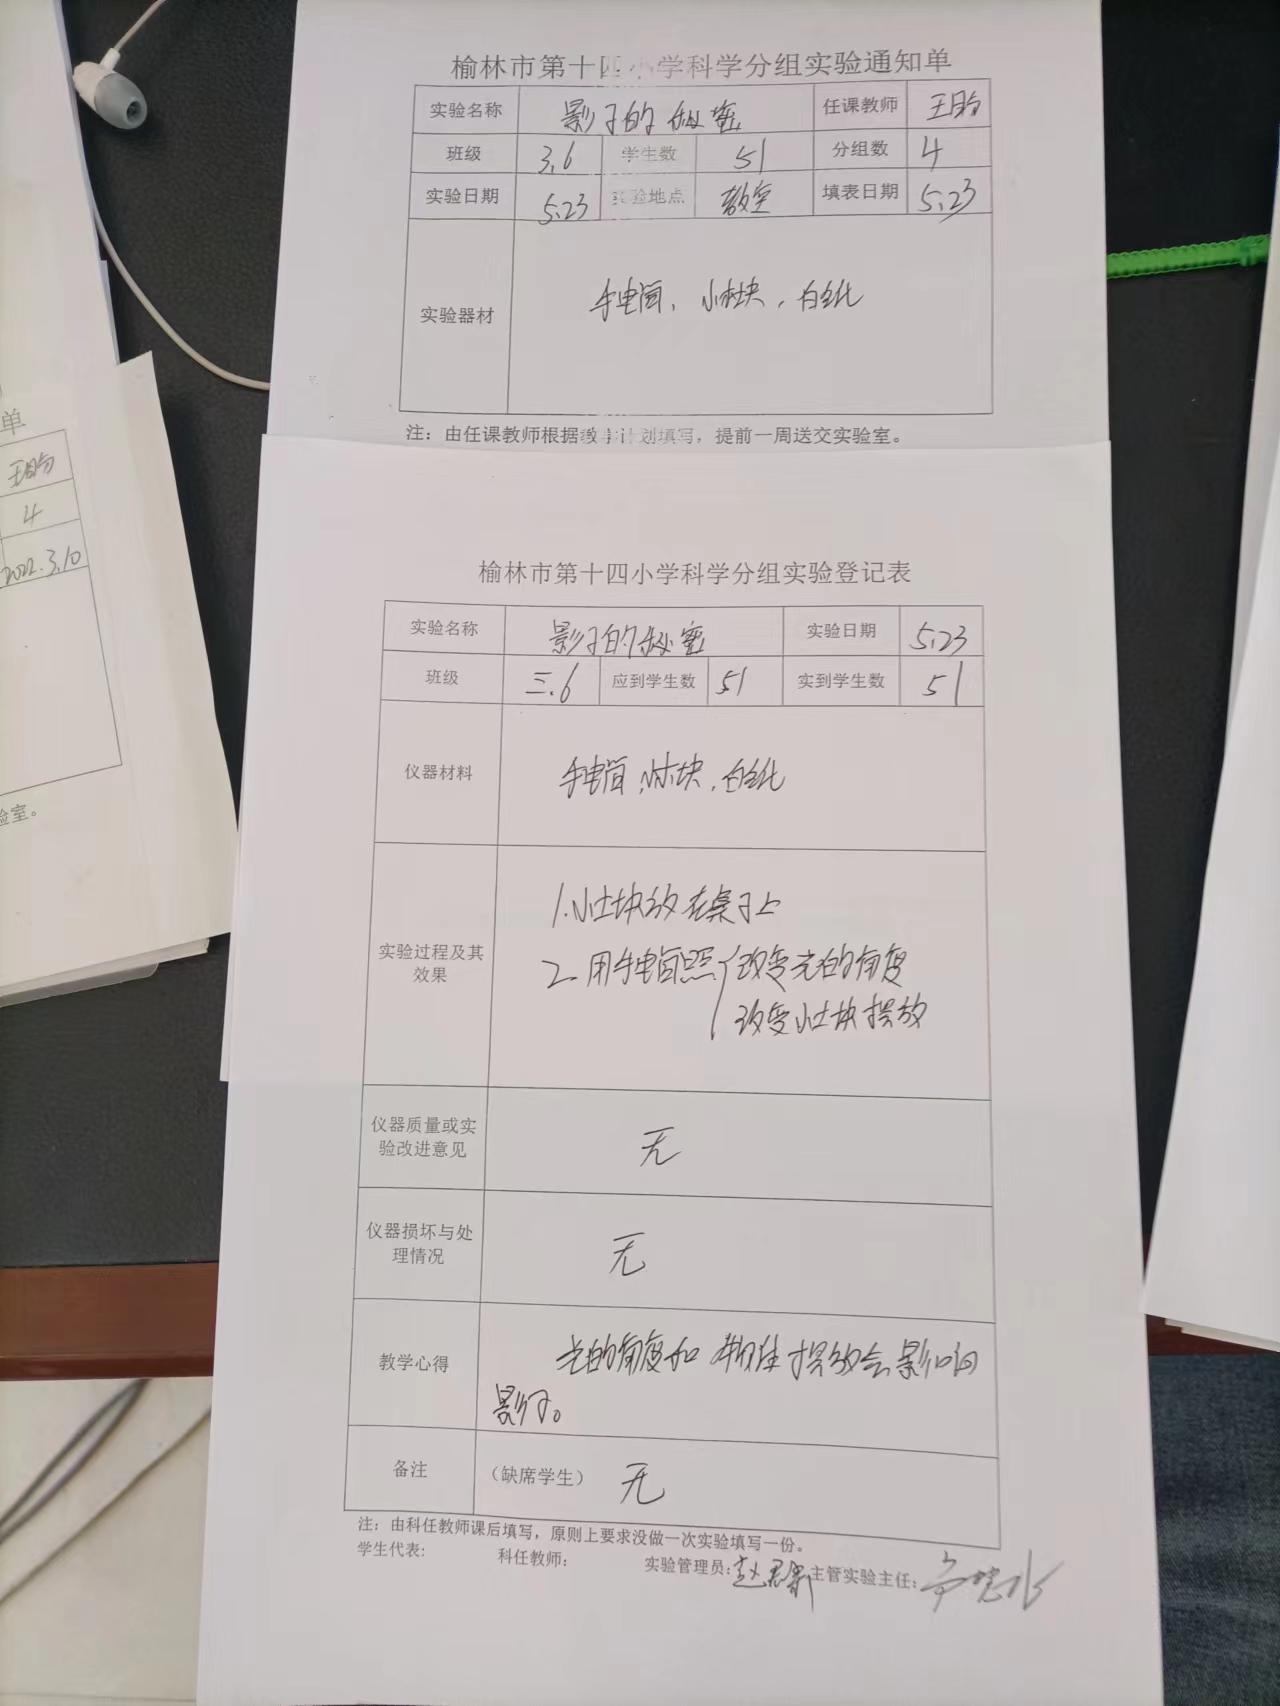 榆林市第十四小学科学分组实验通知单
实验名称 影子的秘密 任课教师
班级 3.6 学生数 51 分组数 4
实验日期 5.23 实验地点 教室 填表日期 5.23
实验器材 手电筒，小木块，白纸
注：由任课教师根据教学计划填写，提前一周送交实验室。
单
4
2022.3.10
验室。
榆林市第十四小学科学分组实验登记表
实验名称 影子的秘密 实验日期 5.23
班级 三.6 应到学生数 51 实到学生数 51
仪器材料 手电筒，小木块，白纸
实验过程及其
效果
1.小木块放在桌子上
2.用手电筒照 改变光的角度
改变小木块摆放
仪器质量或实
验改进意见
无
仪器损坏与处
理情况
无
教学心得 光的角度和物体摆放会影响
影子。
备注 （缺席学生） 无
注：由科任教师课后填写，原则上要求没做一次实验填写一份。
学生代表： 科任教师： 实验管理员： 主管实验主任：